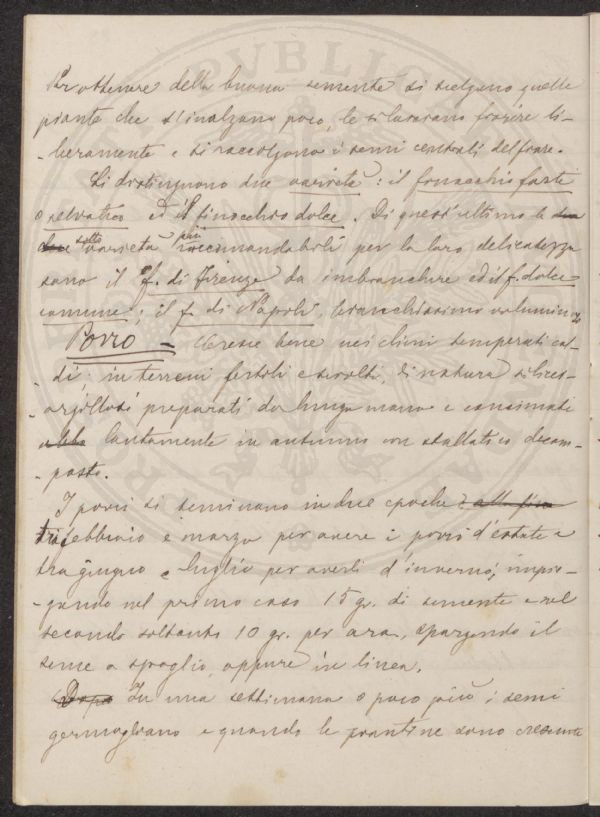 Per ottenere della buona semente si scelgono quelle
piante che s'inalzano poco, le si lasciano fiorire li-
-beramente e si raccolgono i semi centrali del fiore.
Si distinguono due varietà: il finocchio forte
o selvatico ed il finocchio dolce. Di quest'ultimo le due
due sotto varietà più raccomandabili per la loro delicatezza
sono il f. di Firenze da imbianchire ed il f. dolce
comune; il f. di Napoli, bianchissimo volumin
Porro = Cresce bene nei climi temperati cal-
di; in terreni fertili e sciolti, di natura siliceo-
-argillosi preparati da lunga mano e concimati
lautamente in autunno con stallatico decom-
-posto.
I porri si seminano in due epoche: alla fine
tra febbraio e marzo per avere i porri d'estate e
tra giugno e luglio per averli d'inverno, impie-
-gando nel primo caso 15 gr. di semente e nel
secondo soltanto 10 gr. per ara, spargendo il
seme a spaglio, oppure in linea.
Dopo In una settimana o poco più i semi
germogliano e quando le piantine sono cresciute